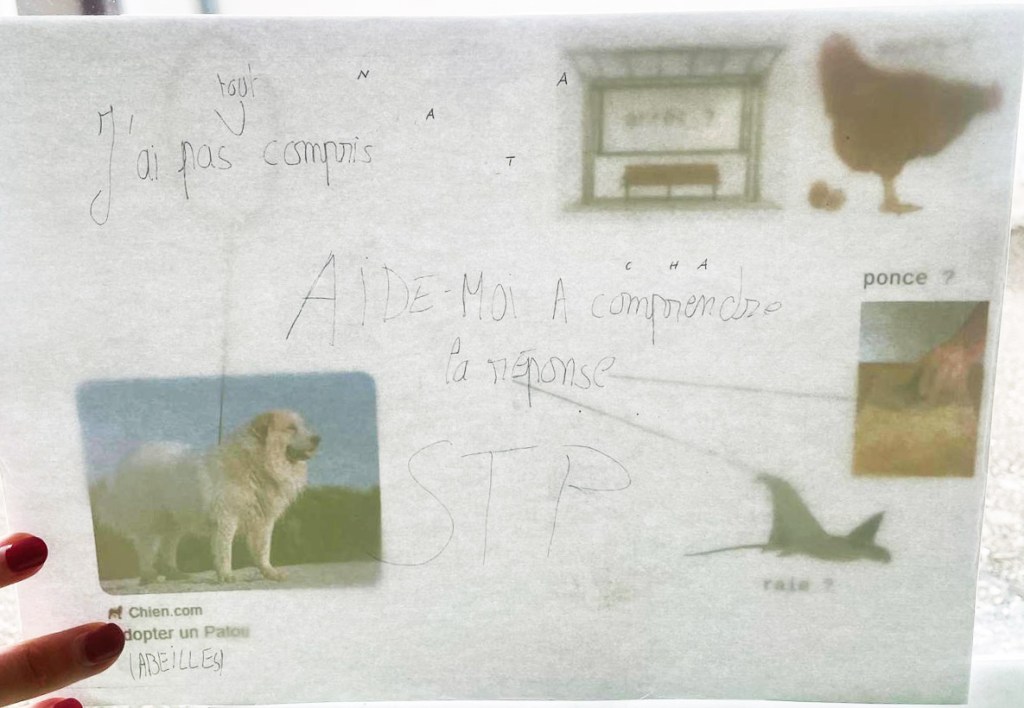 tout
J'ai pas compris
N
A
A
T
arrêt ?
C H A
AIDE-MOI A comprendre
la réponse
ponce ?
STP
raie ?
Chien.com
dopter un Patou
(ABEILLES)